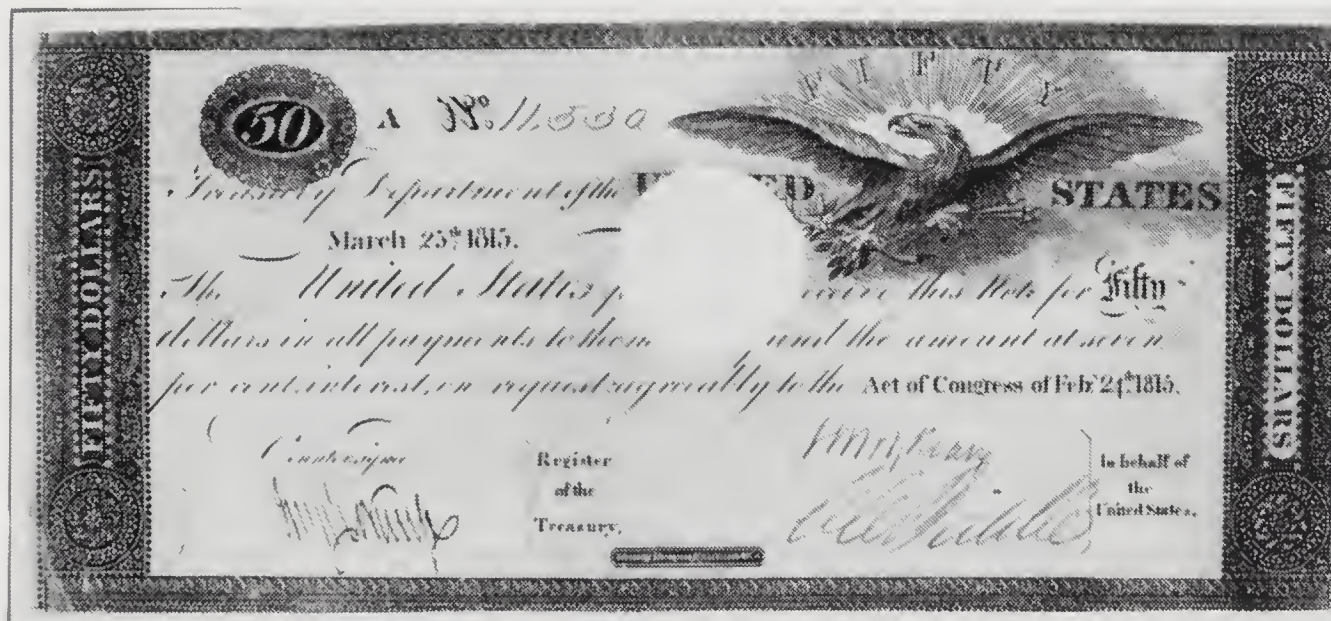 FIFTY
50 A No. 11,330
Treasury Department of the UNITED STATES
March 25th 1815.
The United States receive this Note for Fifty
dollars in all payments to them and the amount at seven
per cent. interest, on request, agreeably to the Act of Congress of Feby 24th 1815.
Countersign
Register
of the
Treasury,
In behalf of
the
United States.
FIFTY DOLLARS
FIFTY DOLLARS